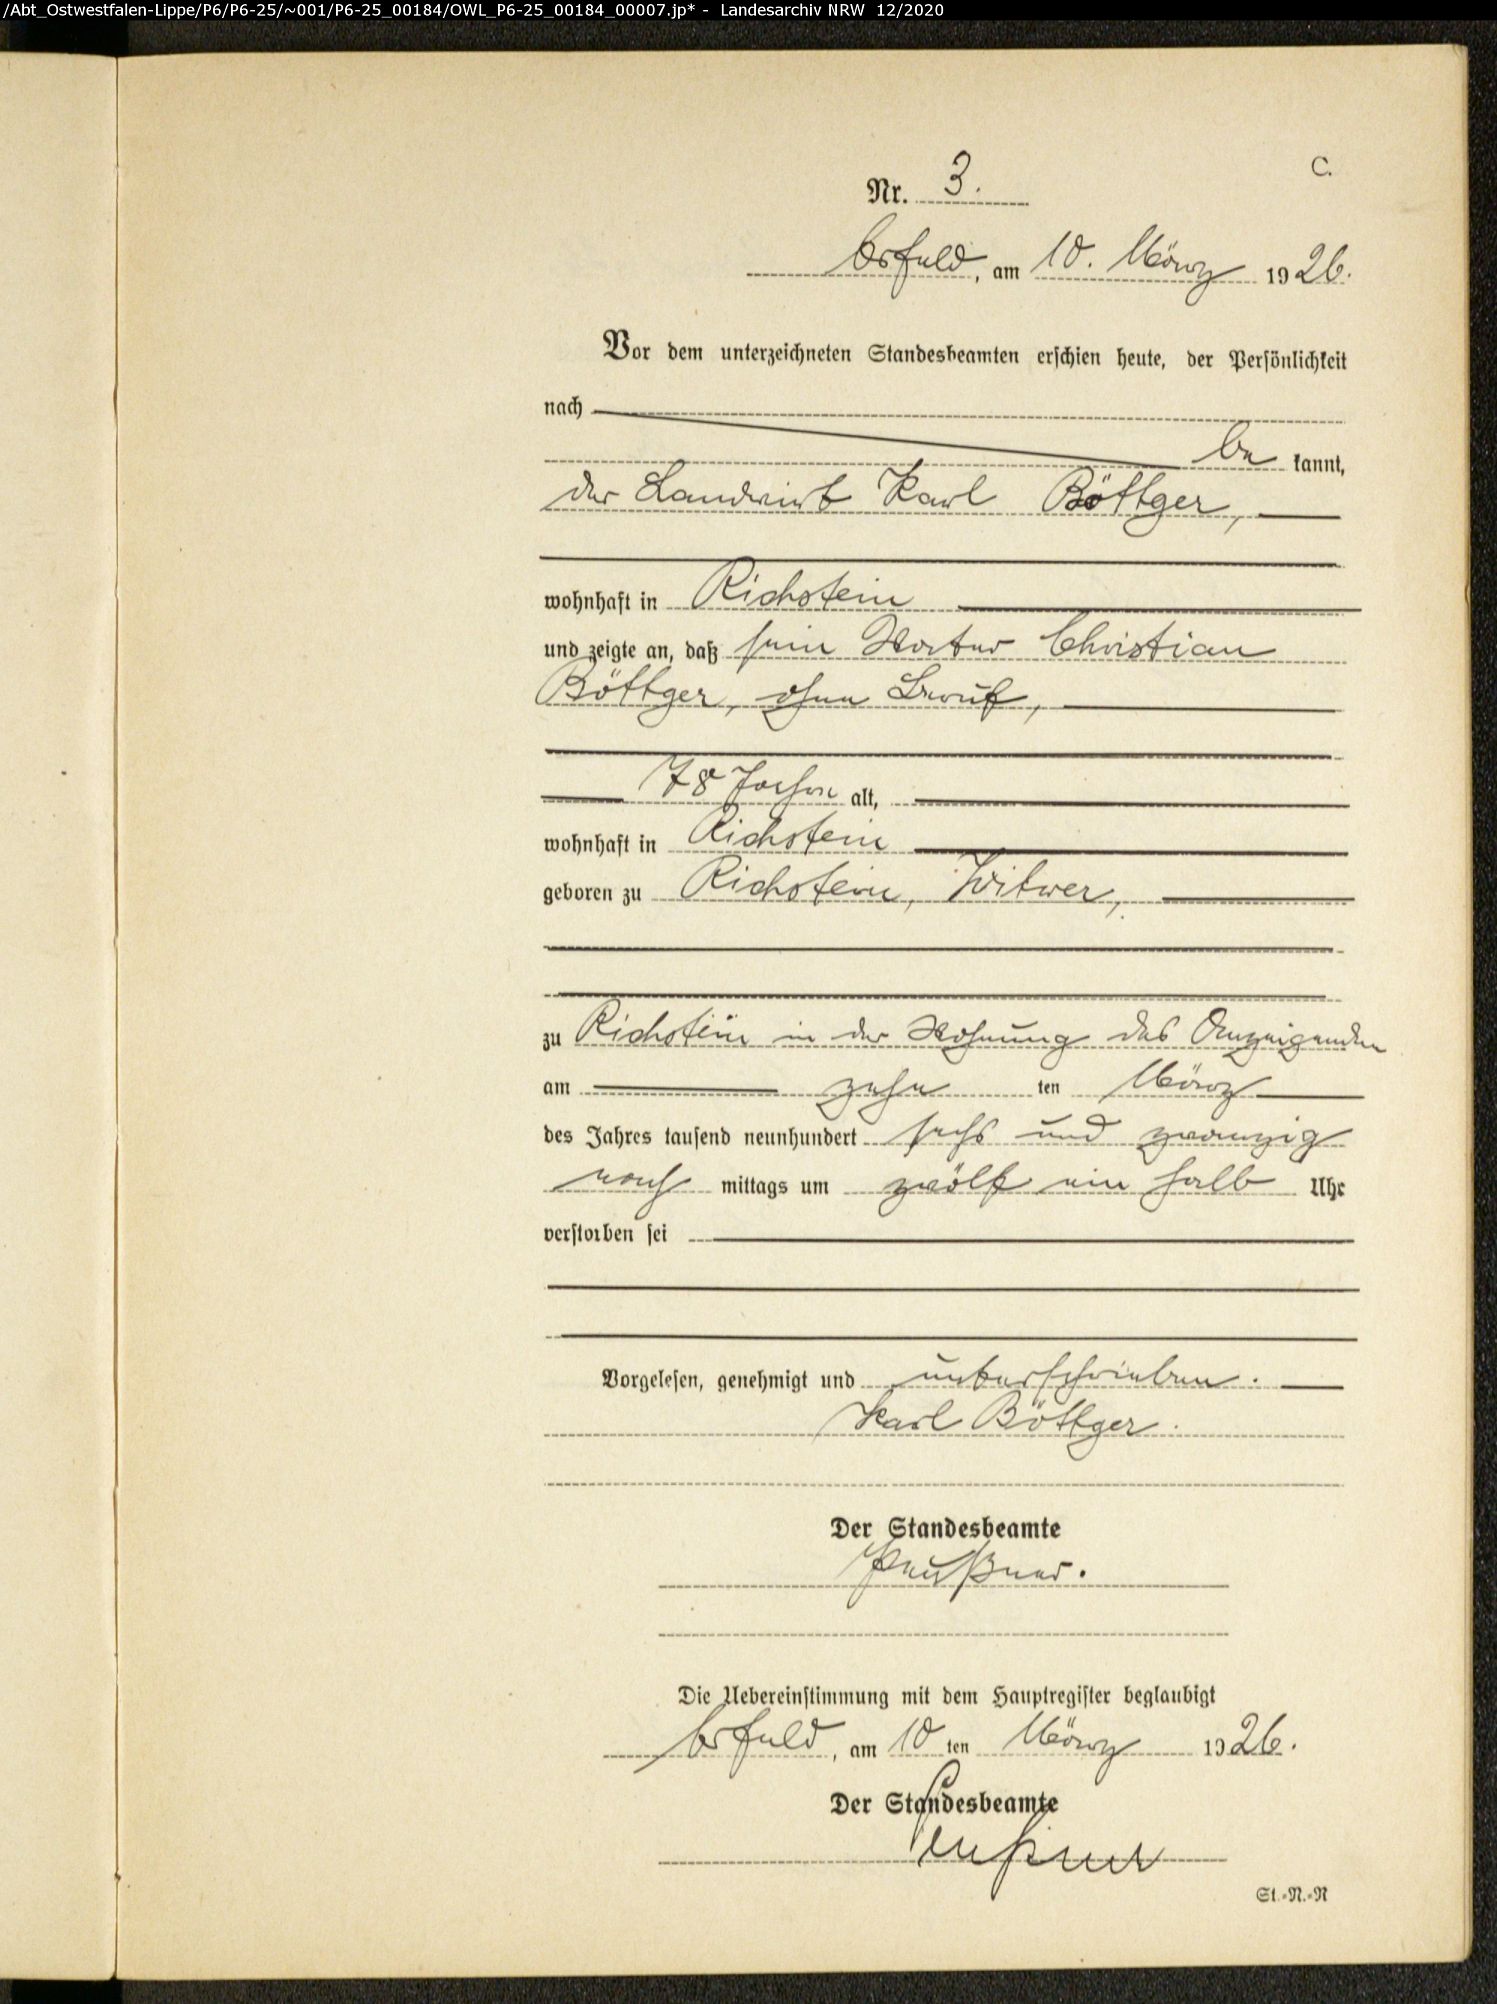 /Abt_Ostwestfalen-Lippe/P6/P6-25/~001/P6-25_00184/OWL_P6-25_00184_00007.jp* - Landesarchiv NRW 12/2020
C.
Nr. 3.
am 10. März 1926.
Vor dem unterzeichneten Standesbeamten erschien heute, der Persönlichkeit
nach
be kannt,
der Landwirt Karl Böttger,
wohnhaft in Richstein
und zeigte an, daß sein Vater Christian
Böttger, ohne Beruf,
78 Jahre alt,
wohnhaft in Richstein
geboren zu Richstein, Witwer,
zu Richstein in der Wohnung des Anzeigenden
am zehn ten März
des Jahres tausend neunhundert sechs und zwanzig
nach mittags um zwölf ein halb Uhr
verstorben sei
Vorgelesen, genehmigt und unterschrieben.
Karl Böttger.
Der Standesbeamte
Die Uebereinstimmung mit dem Hauptregister beglaubigt
am 10 ten März 1926.
Der Standesbeamte
St.-N.-R